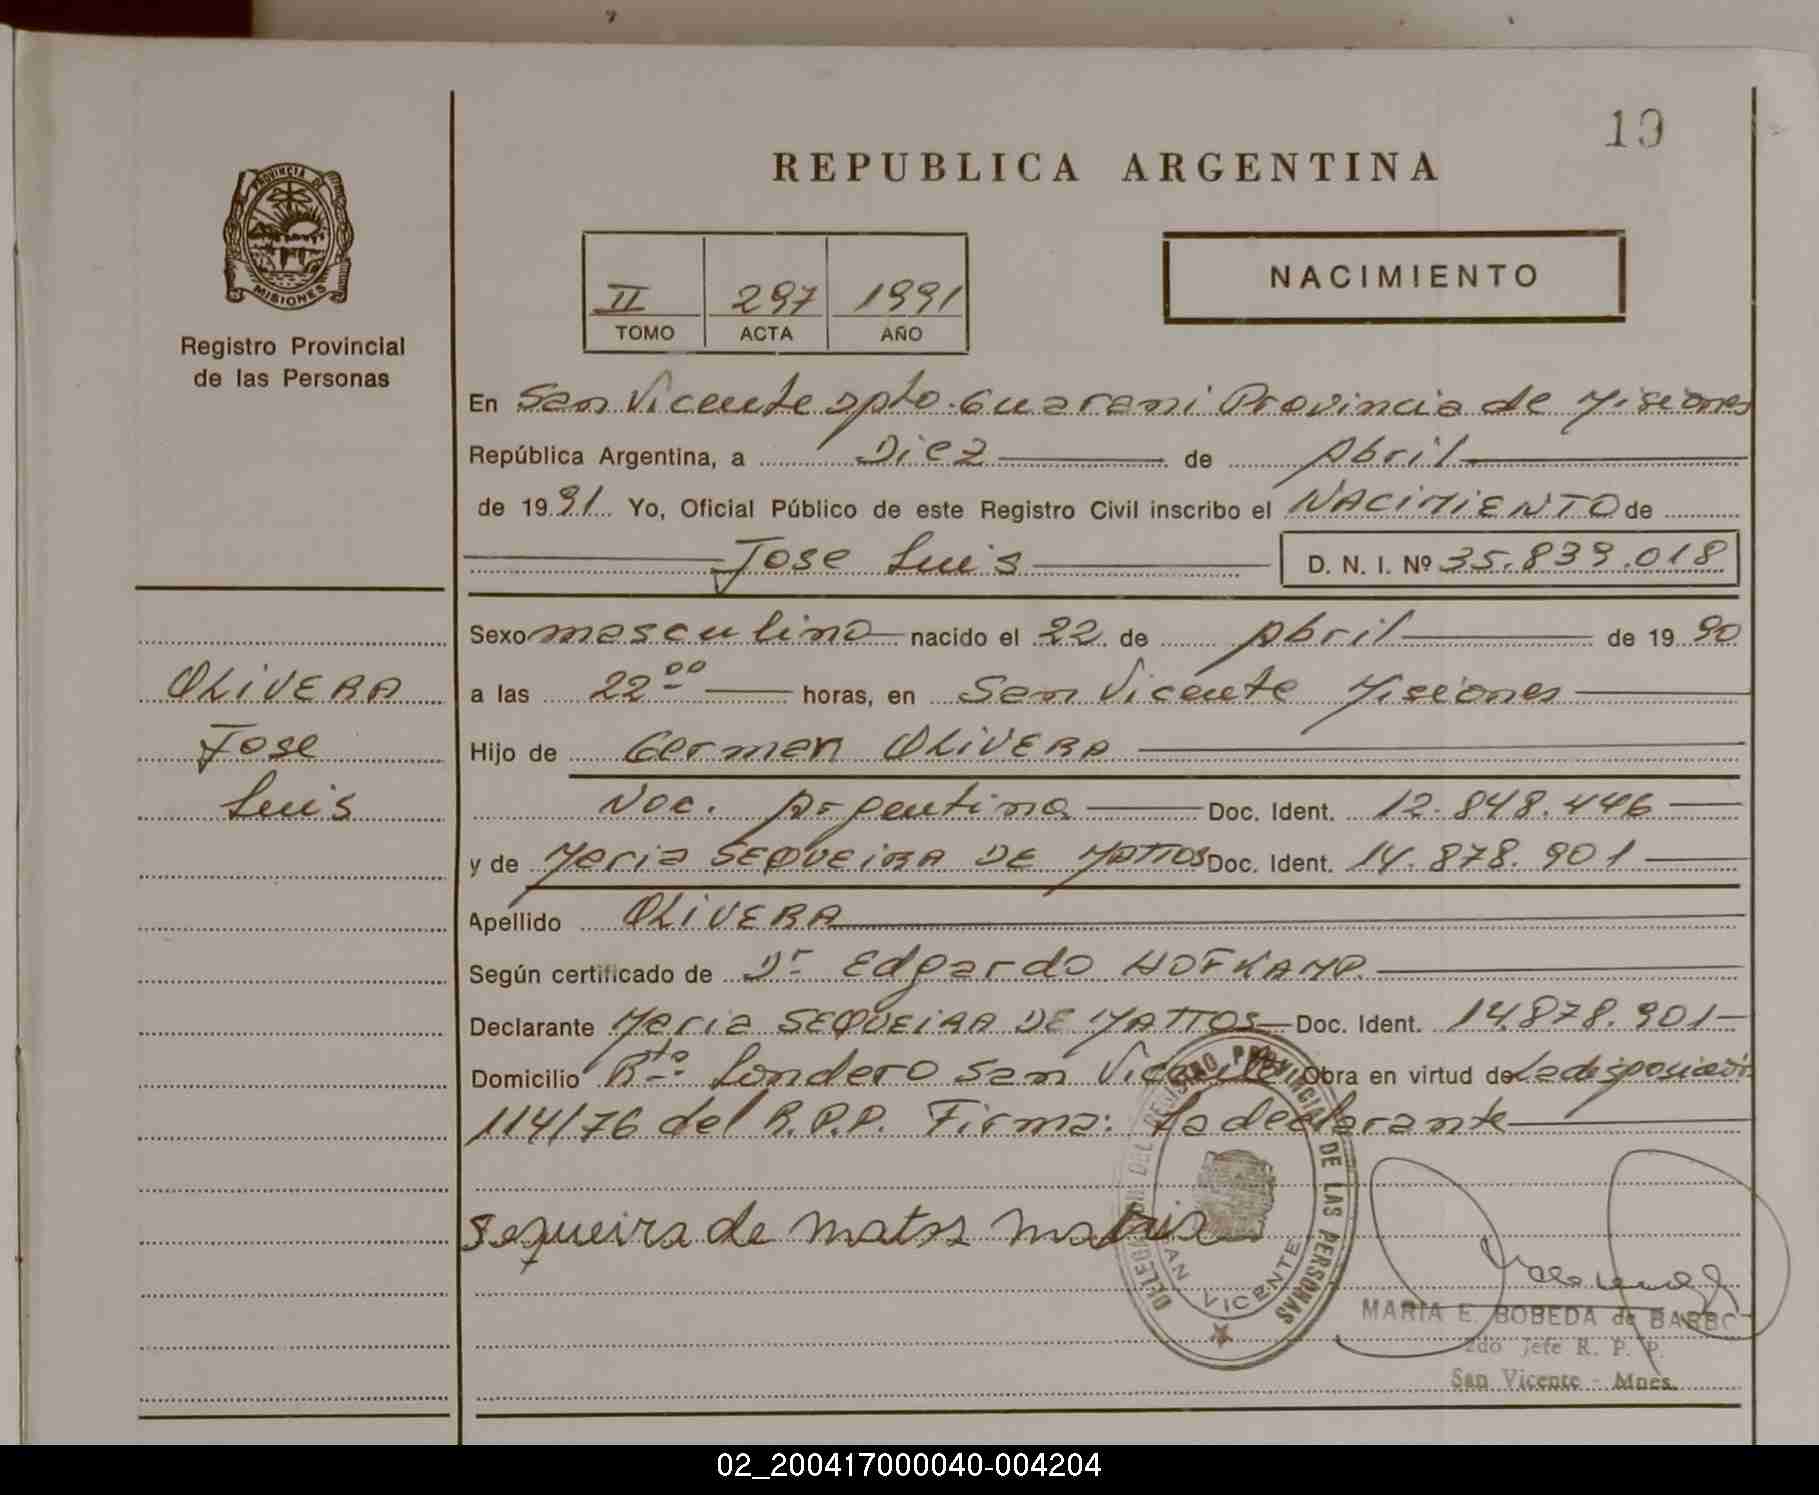 19
PROVINCIA DE
MISIONES
Registro Provincial
de las Personas
REPUBLICA ARGENTINA
II 297 1991
TOMO ACTA AÑO
NACIMIENTO
En San Vicente Dpto. Guarani Provincia de Misiones
República Argentina, a Diez de Abril
de 1991 Yo, Oficial Público de este Registro Civil inscribo el NACIMIENTO de
Jose Luis D. N. I. Nº 35.839.018
Sexo masculino nacido el 22 de Abril de 1990
OLIVERA
Jose
Luis
a las 22 00 horas, en San Vicente Misiones
Hijo de German OLIVERA
Nac. Argentina Doc. Ident. 12.848.446
y de Maria SEQUEIRA DE MATTOS Doc. Ident. 14.878.901
Apellido OLIVERA
Según certificado de Dr Edgardo HOFKAMP
Declarante Maria SEQUEIRA DE MATTOS Doc. Ident. 14.878.901
Domicilio Bto Londero San Vicente Obra en virtud de La disposición
114/76 del R.P.P. Firma: La declarante
Sequeira de matos maria
DELEGACION DEL REGISTRO PROVINCIAL DE LAS PERSONAS
SAN VICENTE
MARIA E. BOBEDA de BARBO
2do Jefe R. P. P.
San Vicente - Mnes.
02_200417000040-004204